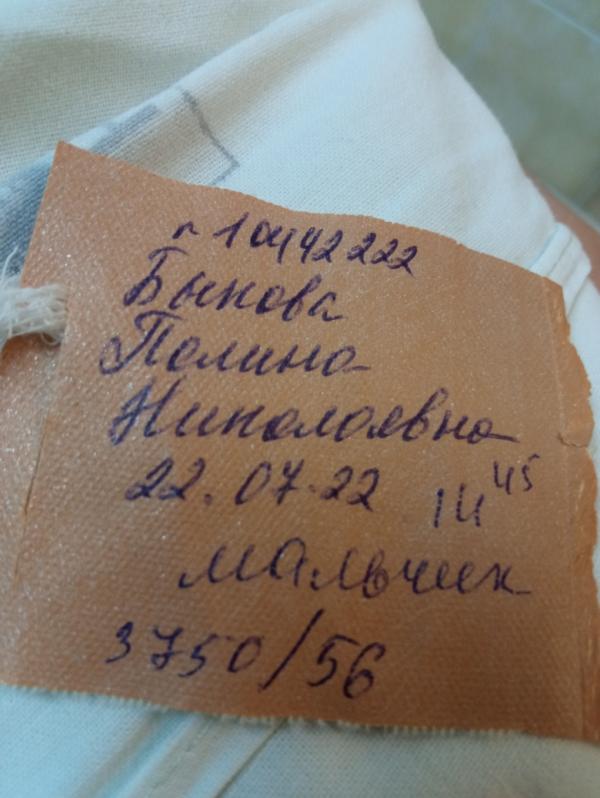 п 10442222
Быкова
Полина
Николаевна
22.07.22 14 45
мальчик
3750/56